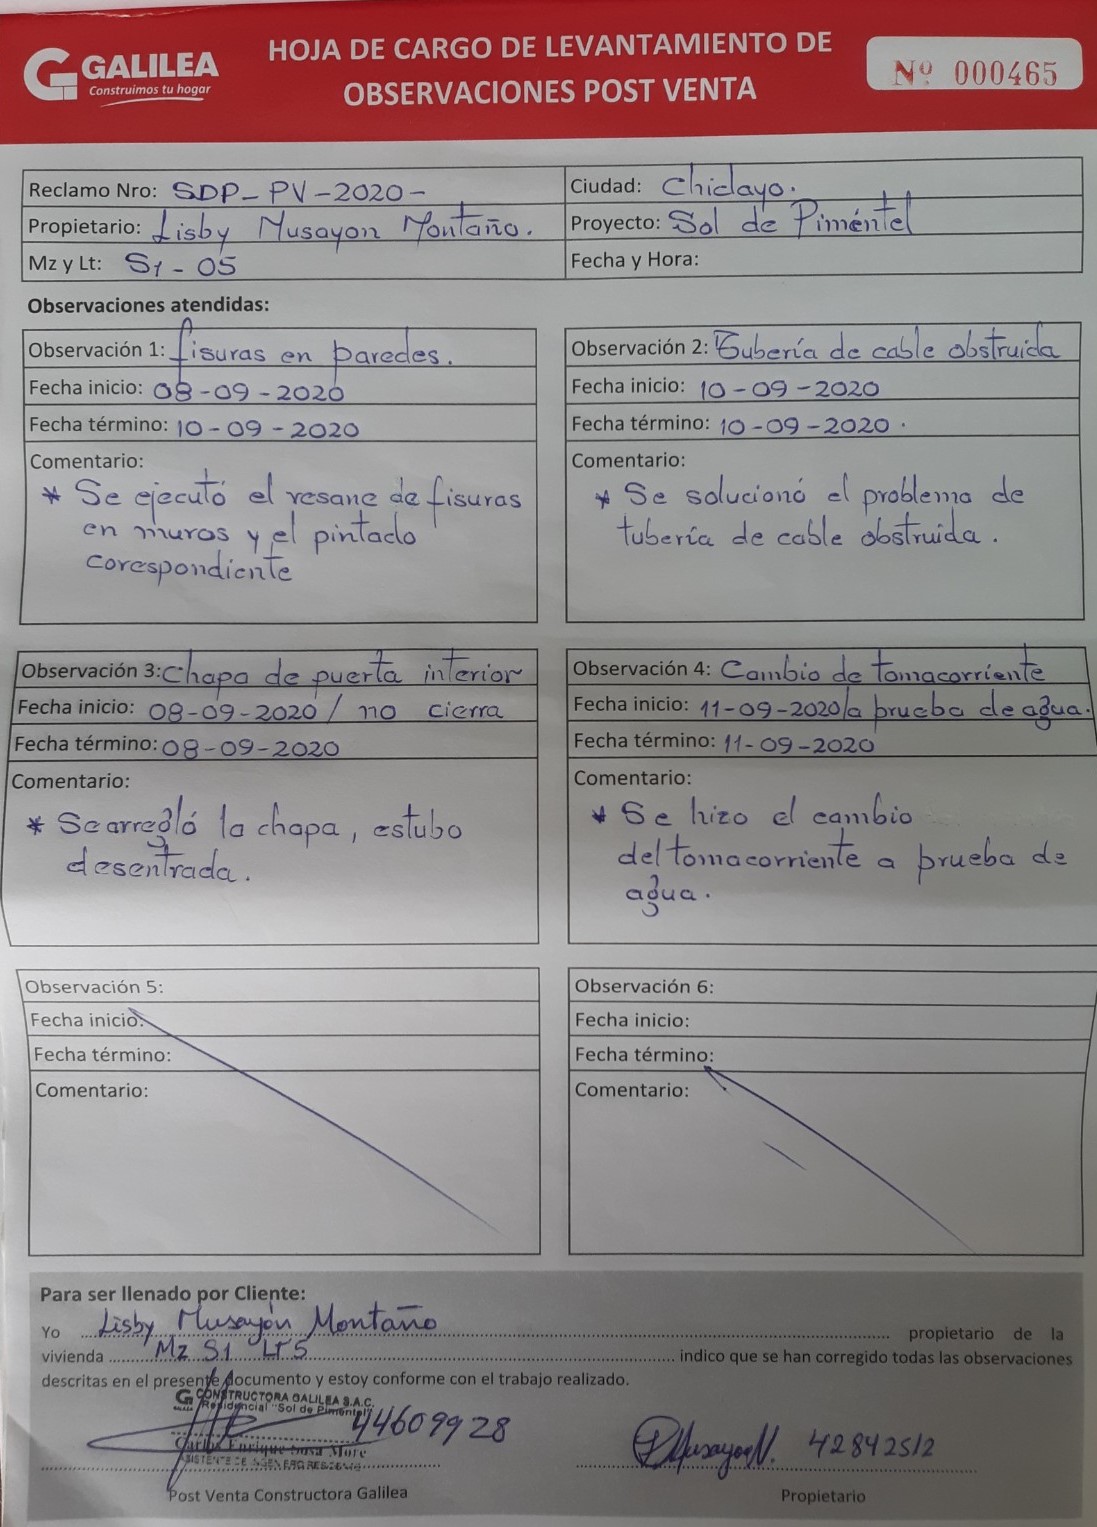 GALILEA
Construimos tu hogar
HOJA DE CARGO DE LEVANTAMIENTO DE
OBSERVACIONES POST VENTA
Nº 000465
Reclamo Nro: SDP-PV-2020-
Ciudad: Chiclayo.
Propietario: Lisby Musayon Montaño.
Proyecto: Sol de Piméntel
Mz y Lt: S1-05
Fecha y Hora:
Observaciones atendidas:
Observación 1: fisuras en paredes.
Fecha inicio: 08-09-2020
Fecha término: 10-09-2020
Comentario:
* Se ejecutó el resane de fisuras
en muros y el pintado
corespondiente
Observación 2: Tubería de cable obstruida
Fecha inicio: 10-09-2020
Fecha término: 10-09-2020.
Comentario:
* Se solucionó el problema de
tubería de cable obstruida.
Observación 3: Chapa de puerta interior
Fecha inicio: 08-09-2020 / no cierra
Fecha término: 08-09-2020
Comentario:
* Se arregló la chapa, estubo
desentrada.
Observación 4: Cambio de tomacorriente
Fecha inicio: 11-09-2020/a prueba de agua.
Fecha término: 11-09-2020
Comentario:
* Se hizo el cambio
del tomacorriente a prueba de
agua.
Observación 5:
Fecha inicio:
Fecha término:
Comentario:
Observación 6:
Fecha inicio:
Fecha término:
Comentario:
Para ser llenado por Cliente:
Yo Lisby Musayón Montaño propietario de la
vivienda Mz S1 LT5 indico que se han corregido todas las observaciones
descritas en el presente documento y estoy conforme con el trabajo realizado.
CONSTRUCTORA GALILEA S.A.C.
Residencial "Sol de Pimentel"
44609928
Carlos Enrique Sosa More
ASISTENTE DE
Post Venta Constructora Galilea
42842512
Propietario